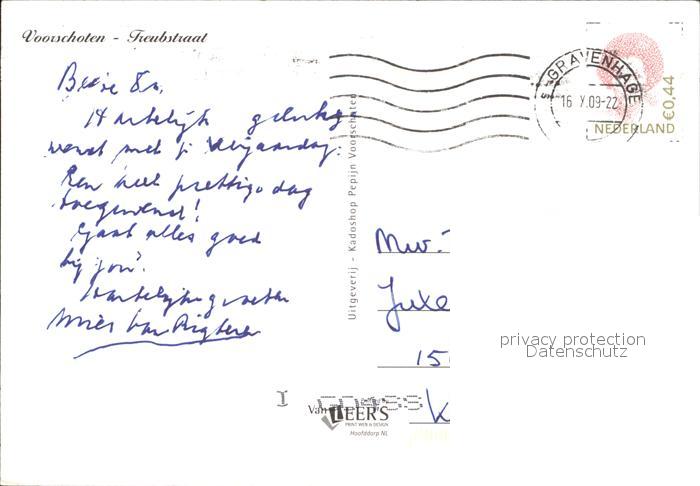 Voorschoten - Treubstraat
Hartelijk geluk
wenst met je verjaardag.
Een heel prettige dag
toegewenst!
Gaat alles goed
bij jou?
Hartelijke groeten
Uitgeverij - Kadoshop Pepijn Voorschoten
'S-GRAVENHAGE
16 X.09-22
€0,44
NEDERLAND
Mw.
15
K
privacy protection
Datenschutz
Van
LEERS
PRINT WEB & DESIGN
Hoofddorp NL